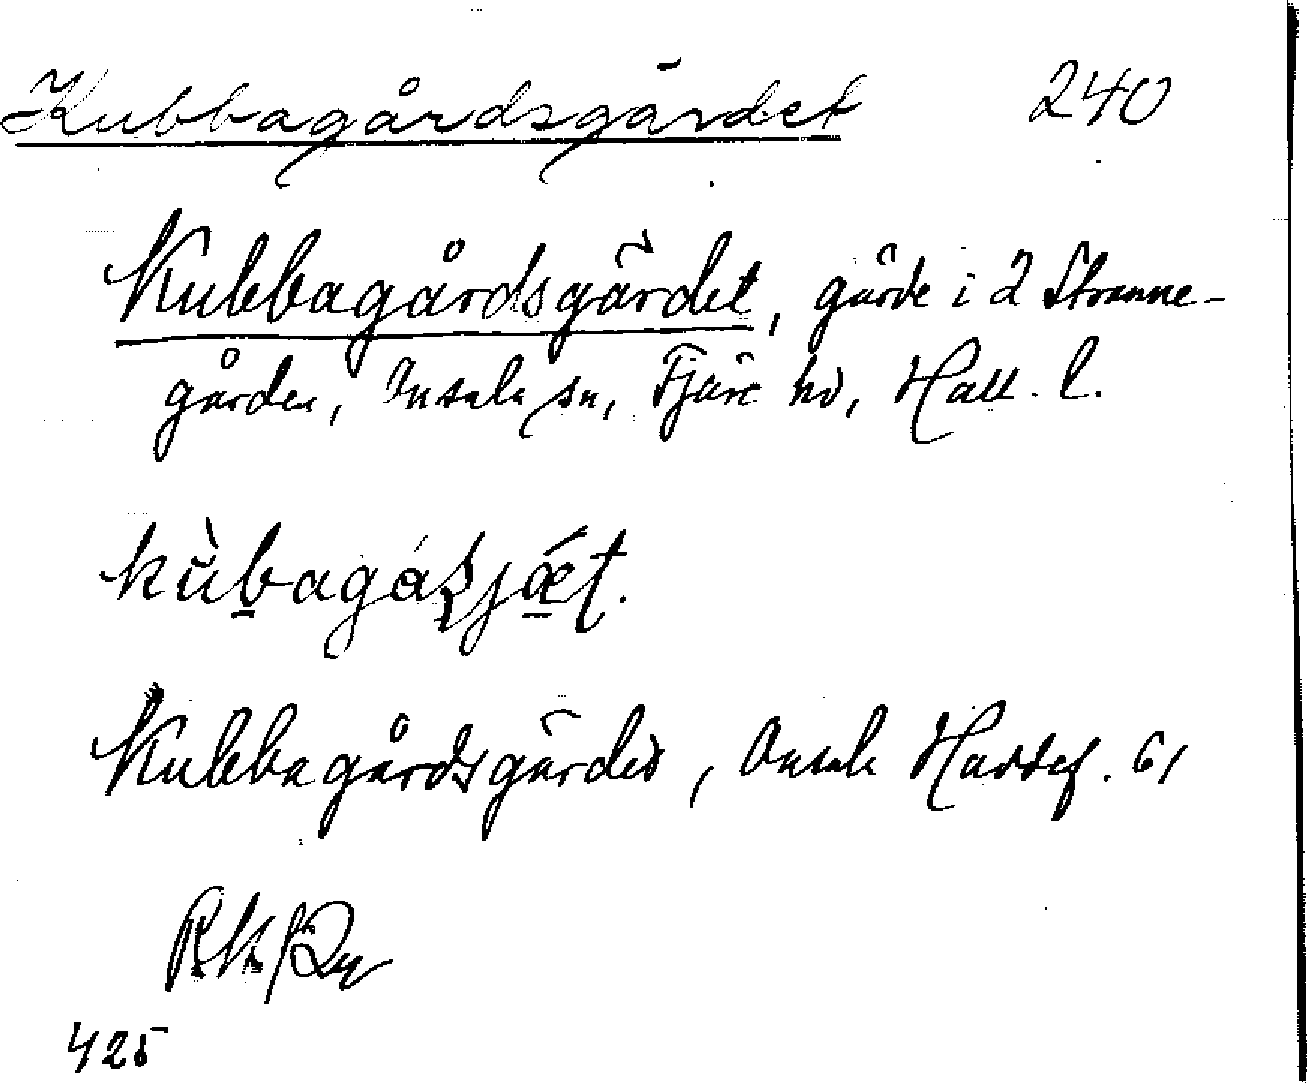 Kubbagårdsgärdet 240
Kubbagårdsgärdet, gärde i 2 Stranne-
gården, Onsala sn, Fjäre hd, Hall. l.
kùbagáʂjæ̀t.
Kubbagårdsgärdet, Onsala 61
425